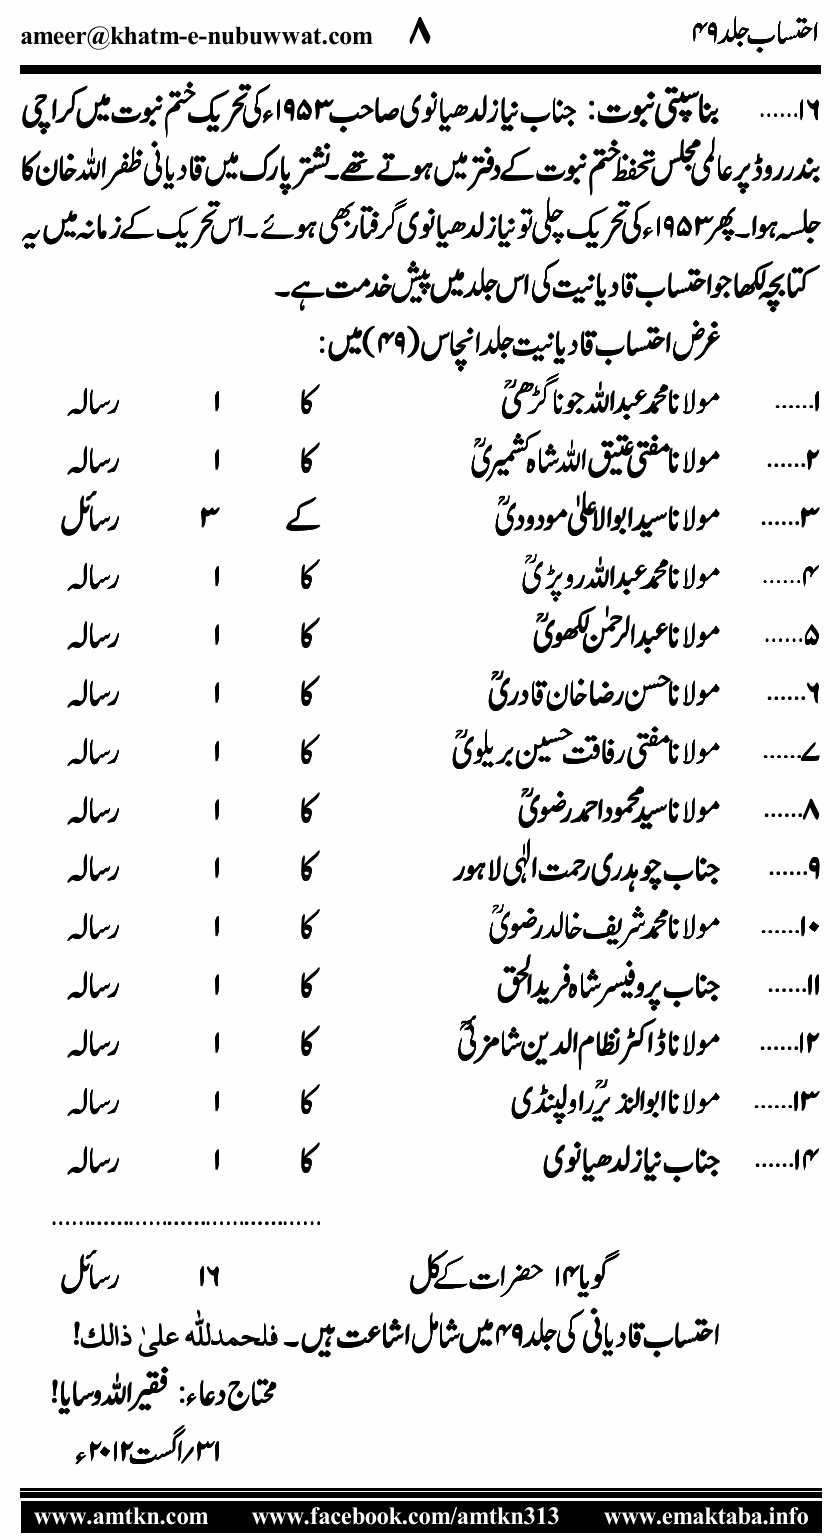 احتساب جلد ۴۹ ۸ ameer@khatm-e-nubuwwat.com
۱۶...... بناسپتی نبوت: جناب نیاز لدھیانوی صاحب ۱۹۵۳ء کی تحریک ختم نبوت میں کراچی
بندر روڈ پر عالمی مجلس تحفظ ختم نبوت کے دفتر میں ہوتے تھے۔ نشتر پارک میں قادیانی ظفر اللہ خان کا
جلسہ ہوا۔ پھر ۱۹۵۳ء کی تحریک چلی تو نیاز لدھیانوی گرفتار بھی ہوئے۔ اس تحریک کے زمانہ میں یہ
کتابچہ لکھا جو احتساب قادیانیت کی اس جلد میں پیش خدمت ہے۔
غرض احتساب قادیانیت جلد انچاس (۴۹) میں:
۱...... مولانا محمد عبداللہ جونا گڑھیؒ کا ۱ رسالہ
۲...... مولانا مفتی عتیق اللہ شاہ کشمیریؒ کا ۱ رسالہ
۳...... مولانا سید ابوالاعلیٰ مودودیؒ کے ۳ رسائل
۴...... مولانا محمد عبداللہ روپڑیؒ کا ۱ رسالہ
۵...... مولانا عبدالرحمٰن لکھویؒ کا ۱ رسالہ
۶...... مولانا حسن رضا خان قادریؒ کا ۱ رسالہ
۷...... مولانا مفتی رفاقت حسین بریلویؒ کا ۱ رسالہ
۸...... مولانا سید محمود احمد رضویؒ کا ۱ رسالہ
۹...... جناب چوہدری رحمت الٰہی لاہور کا ۱ رسالہ
۱۰...... مولانا محمد شریف خالد رضویؒ کا ۱ رسالہ
۱۱...... جناب پروفیسر شاہ فرید الحق کا ۱ رسالہ
۱۲...... مولانا ڈاکٹر نظام الدین شامزئیؒ کا ۱ رسالہ
۱۳...... مولانا ابوالنذیرؒ راولپنڈی کا ۱ رسالہ
۱۴...... جناب نیاز لدھیانوی کا ۱ رسالہ
..........................................
گویا ۱۴ حضرات کے کل ۱۶ رسائل
احتساب قادیانی کی جلد ۴۹ میں شامل اشاعت ہیں۔ فلحمدللّٰه علیٰ ذالك!
محتاج دعاء: فقیر اللہ وسایا!
۳۱/اگست ۲۰۱۲ء
www.amtkn.com www.facebook.com/amtkn313 www.emaktaba.info